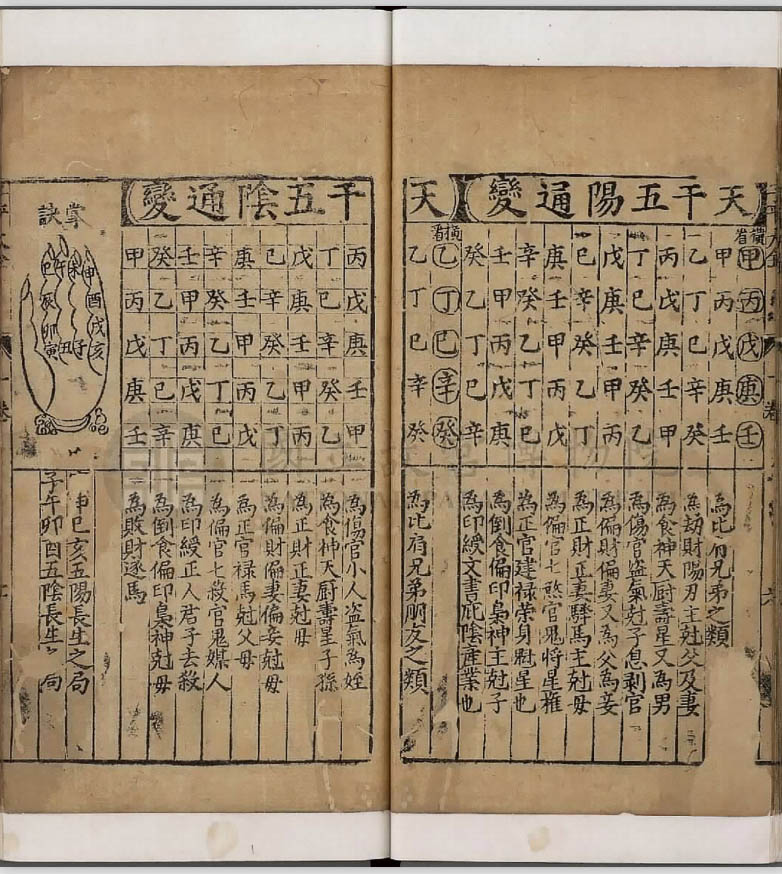 天干五陽通變
橫看
甲丙戊庚壬
甲丙戊庚壬為比肩兄弟之類
乙丁巳辛癸為劫財陽刃主尅父及妻
丙戊庚壬甲為食神天厨壽星又為男
丁巳辛癸乙為傷官盗氣尅子息剥官
戊庚壬甲丙為偏財偏妻又為父為妾
巳辛癸乙丁為正財正妻驛馬主尅母
庚壬甲丙戊為偏官七煞官鬼將星權
辛癸乙丁巳為正官建禄荣身尉星也
壬甲丙戊庚為倒食偏印梟神主尅子
癸乙丁巳辛為印綬文書庇陰産業也
天干五陰通變
橫看
乙丁巳辛癸
乙丁巳辛癸為比肩兄弟朋友之類
丙戊庚壬甲為傷官小人盗氣為姪
丁巳辛癸乙為食神天厨壽星子孫
戊庚壬甲丙為正財正妻尅母
巳辛癸乙丁為偏財偏妻偏妾尅母
庚壬甲丙戊為正官禄馬尅父母
辛癸乙丁巳為偏官七殺官鬼媒人
壬甲丙戊庚為印綬正人君子去殺
癸乙丁巳辛為倒食偏印梟神尅母
甲丙戊庚壬為敗財逐馬
掌訣
申酉戌亥
未子
午丑
巳辰卯寅
申巳亥五陽長生之局
子午卯酉五陰長生局
卷一